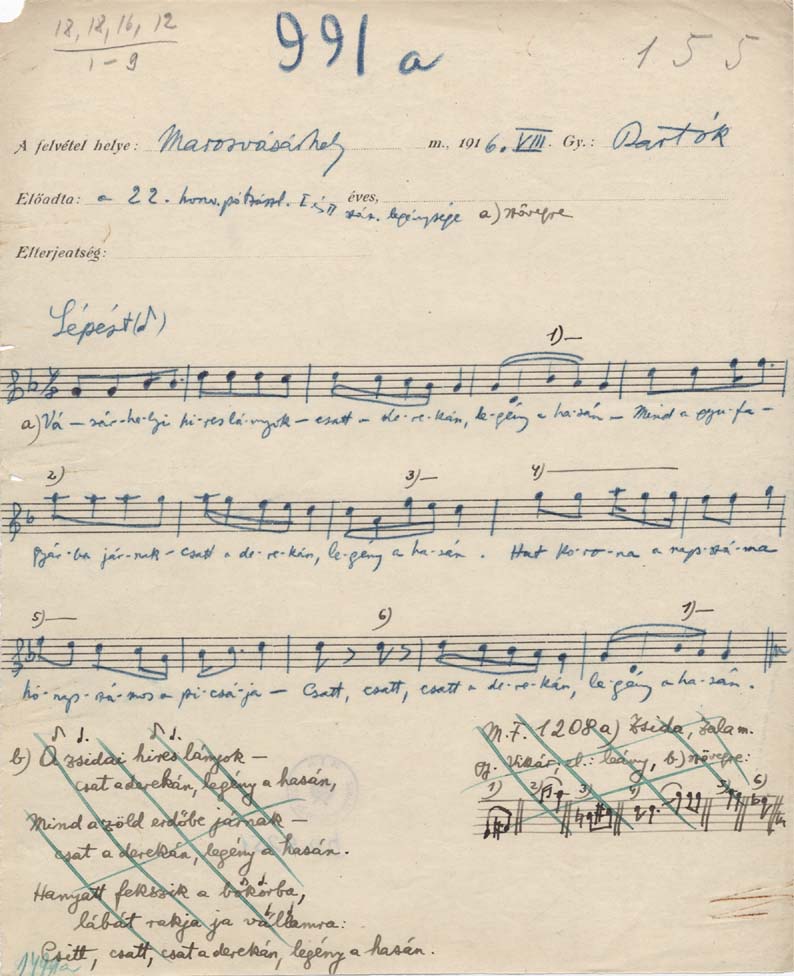 18, 18, 16, 12
1–9
991 a
155
A felvétel helye: Marosvásárhely m., 1916. VIII. Gy.: Bartók
Előadta: a 22. honv. pótzászl. I és II éves,
szá. legénysége a) szövegre
Elterjeatség:
Lépést
1)
a) Vá – sár-he-lyi hi-res lá-nyok – csatt a de-re-kán, le-gény a ha-sán – Mind a gyu-fa-
2) 3) 4)
gyár-ba jár-nak – csatt a de-re-kán, le-gény a ha-sán. Hat ko-ro-na a nap-szá-ma
5) 6) 1)
hó-nap-szá-mos a pi-csá-ja – Csatt, csatt, csatt a de-re-kán, le-gény a ha-sán.
b) A zsidai hires lányok –
csat a derekán, legény a hasán,
Mind a zöld erdőbe járnak –
csat a derekán, legény a hasán.
Hanyatt fekszik a bokorba,
lábát rakja ja vállamra:
Csitt, csatt, csat a derekán, legény a hasán.
M.F. 1208a) Zsida, Zalam.
gy. Vikár, el.: leány, b) szövegre:
1) 2) 3) 4) 5) 6)